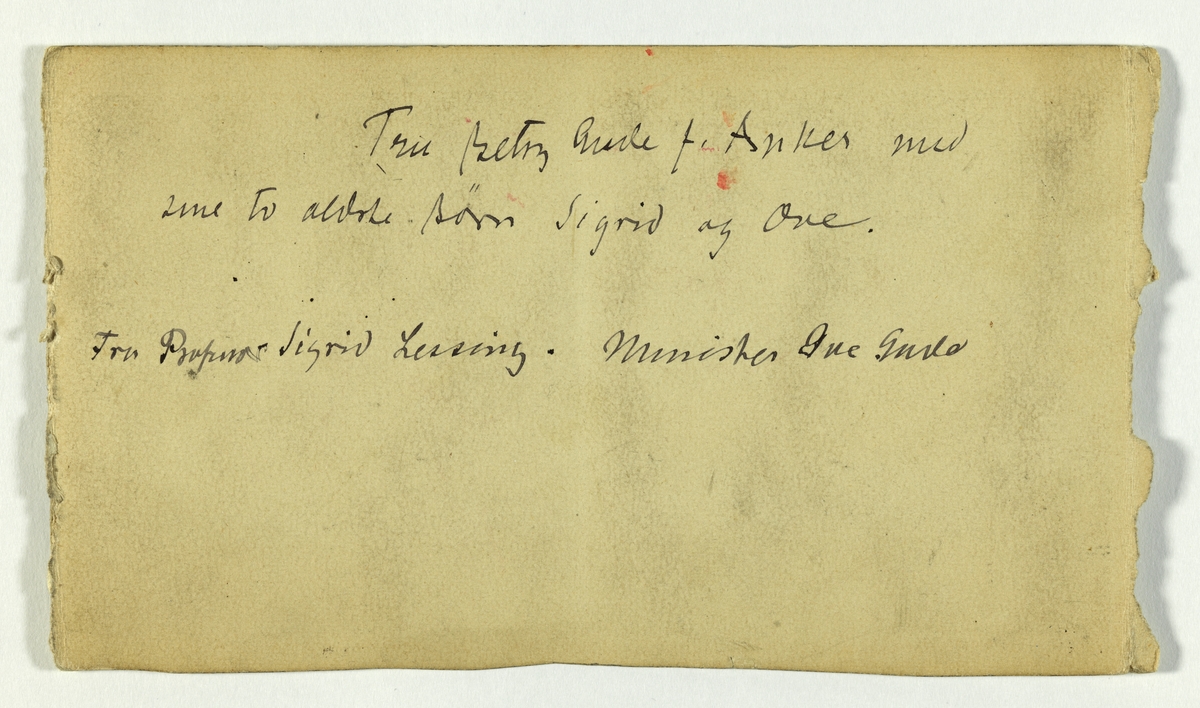 Fru Betzy Gude f. Anker med
sine to ældste Børn Sigrid og Ove.
Fru Professor Sigrid Lessing. Minister Ove Gude